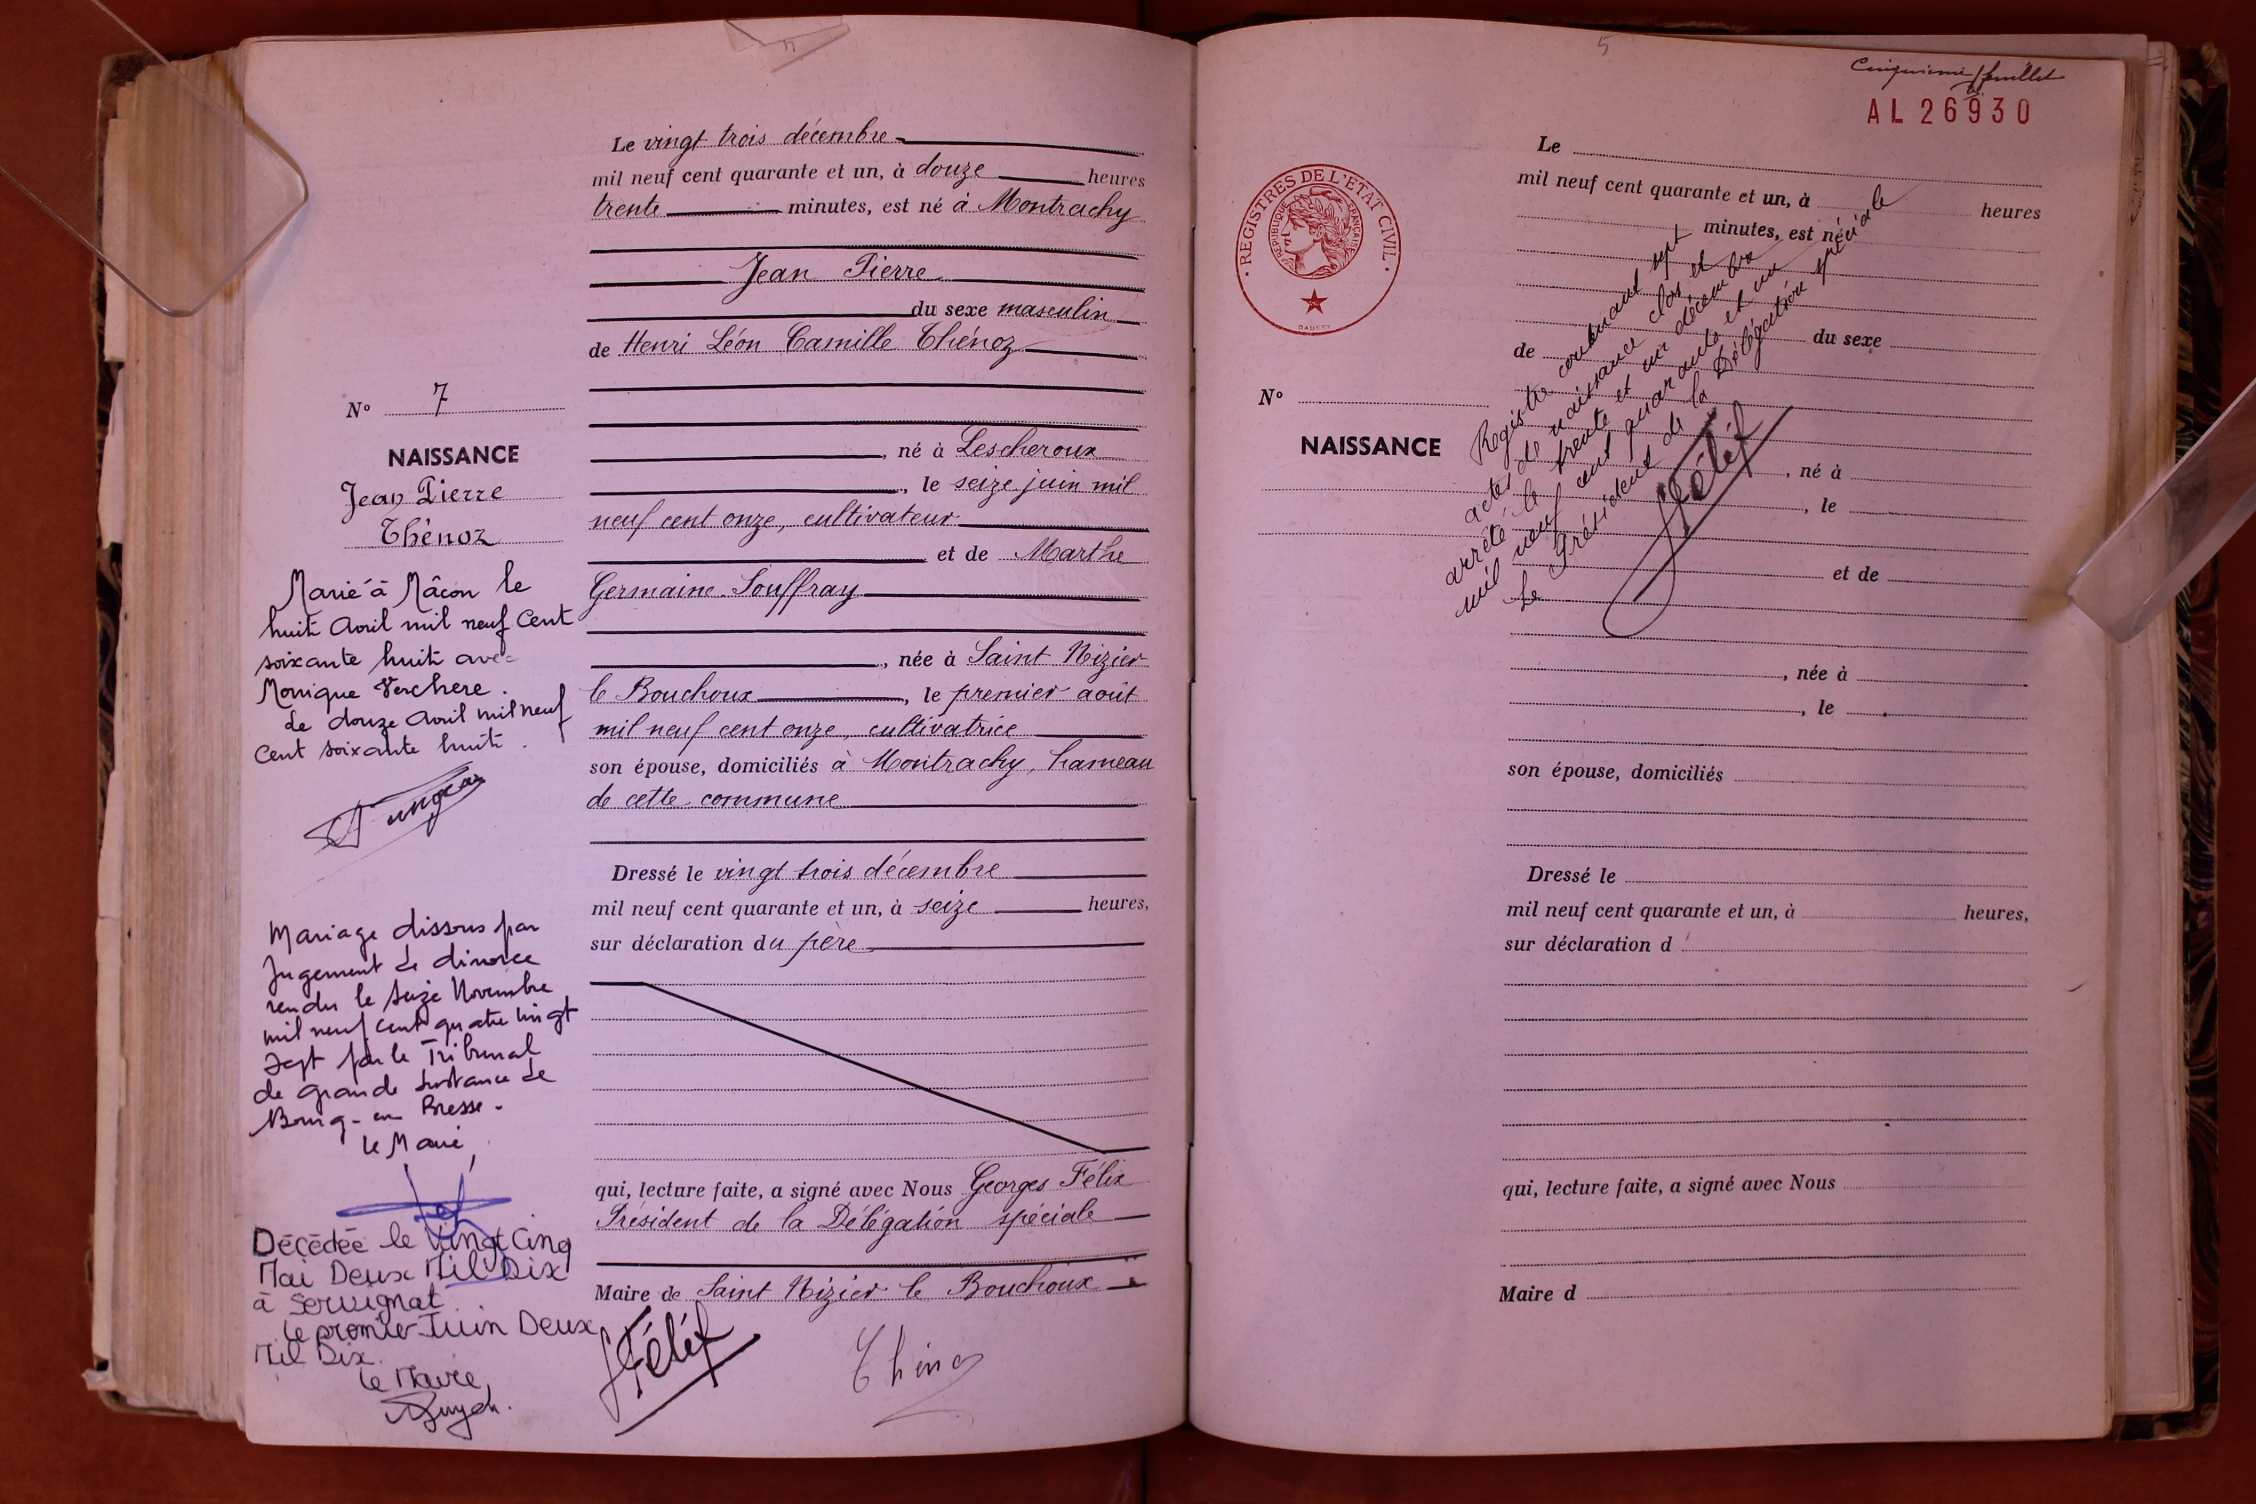 Le vingt trois décembre
mil neuf cent quarante et un, à douze heures
trente minutes, est né à Montrachy
Jean Pierre
du sexe masculin
de Henri Léon Camille Thénoz
, né à Lescheroux
, le seize juin mil
neuf cent onze, cultivateur
et de Marthe
Germaine Souffray
, née à Saint Nizier
le Bouchoux, le premier août
mil neuf cent onze, cultivatrice
son épouse, domiciliés à Montrachy, hameau
de cette commune
Dressé le vingt trois décembre
mil neuf cent quarante et un, à seize heures,
sur déclaration du père
qui, lecture faite, a signé avec Nous Georges Félix
Président de la Délégation spéciale
Maire de Saint Nizier le Bouchoux
Félix
Thénoz
N° 7
NAISSANCE
Jean Pierre
Thénoz
Marié à Mâcon le
huit Avril mil neuf Cent
soixante huit avec
Monique Verchere.
Le douze Avril mil neuf
Cent soixante huit.
Mariage dissous par
Jugement de divorce
rendu le seize Novembre
mil neuf cent quatre vingt
sept par le Tribunal
de Grande Instance de
Bourg-en Bresse.
le Maire,
Décédée le Vingt Cinq
Mai Deux Mil Dix
à Servignat.
Le premier Juin Deux
Mil Dix.
Le Maire,
5
Cinquième feuillet
AL26930
REGISTRES DE L'ETAT CIVIL
REPUBLIQUE FRANÇAISE
Le
mil neuf cent quarante et un, à heures
minutes, est né
du sexe
de
N°
NAISSANCE
, né à
, le
et de
, née à
, le
son épouse, domiciliés
Dressé le
mil neuf cent quarante et un, à heures,
sur déclaration d
qui, lecture faite, a signé avec Nous
Maire d
Registre contenant sept
actes de naissance clos et
arrêté le trente et un décembre
mil neuf cent quarante et un
Le Président de la Délégation spéciale
Félix